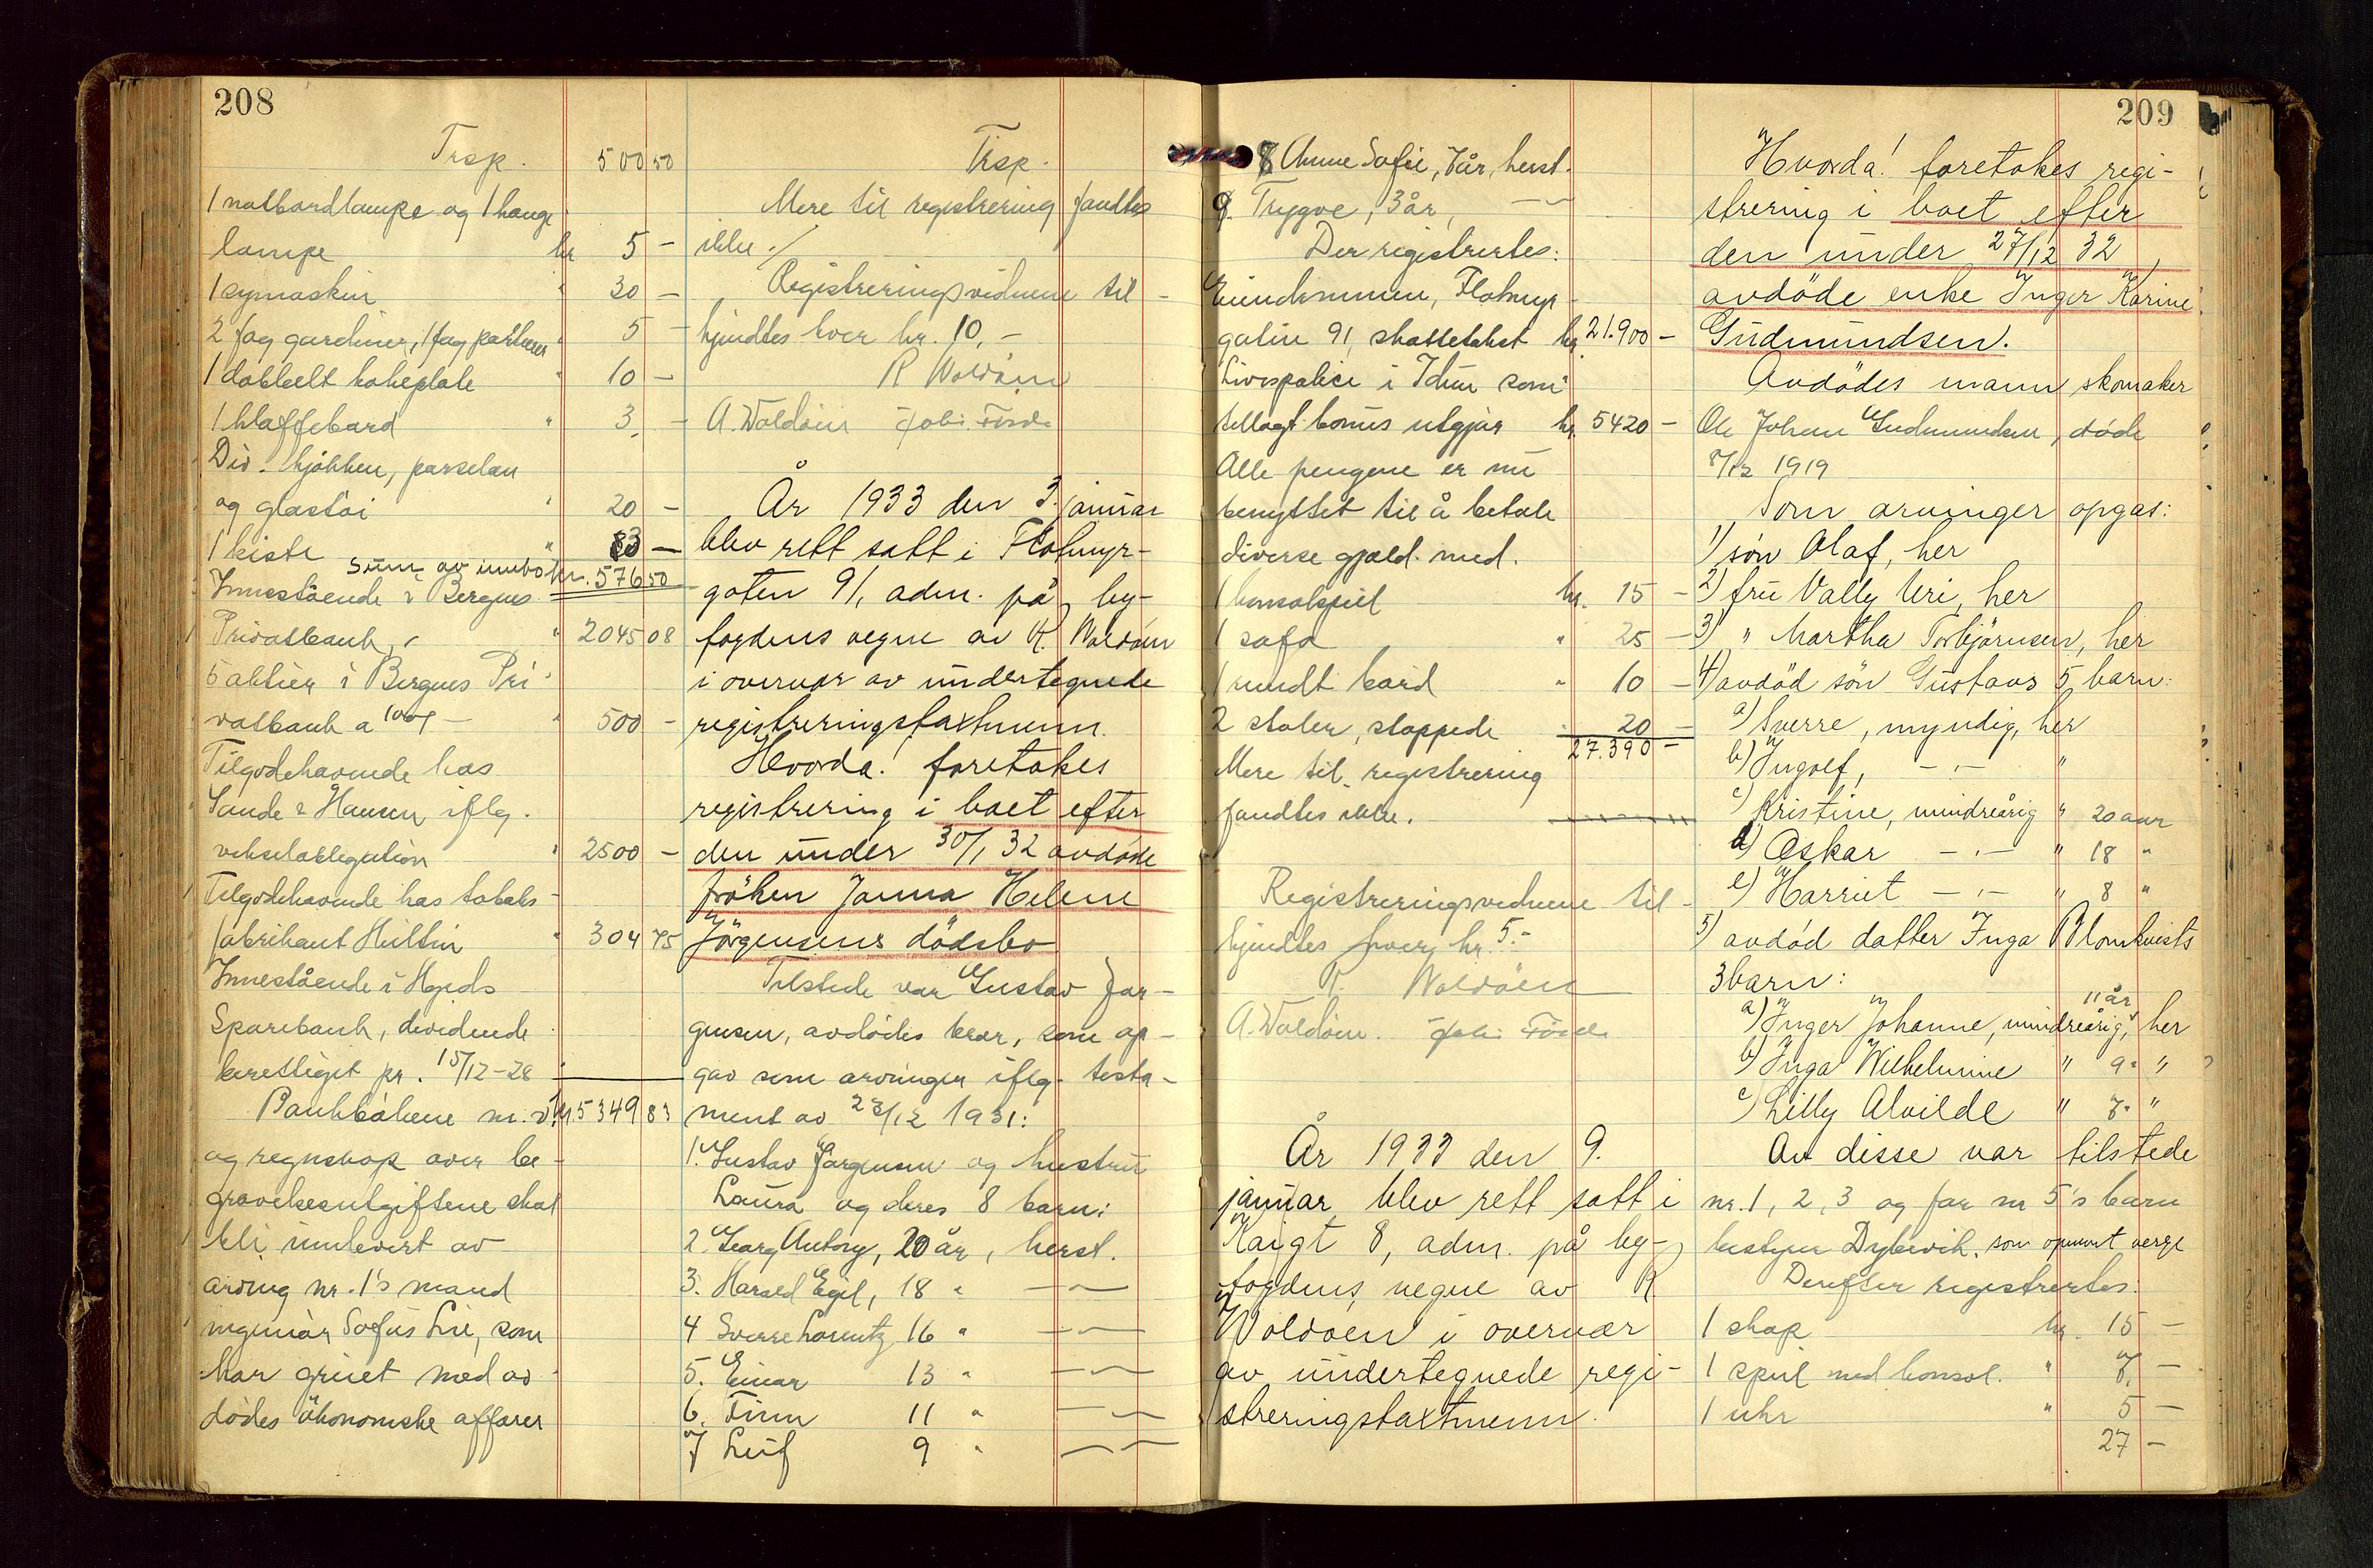 208
Trsp. 500 50
1 natbordlampe og 1 hænge
lampe kr 5 -
1 symaskin " 30 -
2 fag gardiner, 1 fag portierer " 5 -
1 dobbelt kokeplate " 10 -
1 klaffebord " 3 -
Div. kjökken, porselæn
og glastöi " 20 -
1 kiste " 3 -
Sum av innbo kr. 576 50
Innestående i Bergens
Privatbank, " 2045 08
5 aktier i Bergens Pri-
vatbank a 100/- " 500 -
Tilgodehavende hos
Sande & Hansen iflg.
vekselobligation " 2500 -
Tilgodehavende hos tobaks-
fabrikant Hultin " 304 75
Innestående i Hgsds
Sparebank, dividende
berettiget pr. 15/12-28
Bankbökene m.v. kr. 5349 83
og regnskap over be-
gravelsesutgiftene skal
bli innlevert av
arving nr. 1's mand
ingeniör Sofus Lie, som
har greiet med av-
dödes ökonomiske affærer
Trsp.
Mere til registrering fandtes
ikke./
Registreringsvidnene til-
kjendtes hver kr. 10,-
R Waldöen
A. Waldöen Joh. Förde
År 1933 den 3. januar
blev rett satt i Flotmyr-
gaten 91, adm. på by-
fogdens vegne av R. Waldöen
i overvær av undertegnede
registreringstaxtmenn.
Hvorda! foretokes
registrering i boet efter
den under 30/1 32 avdöde
fröken Janna Helene
Jörgensens dödsbo
Tilstede var Gustav Jör-
gensen, avdödes bror, som op-
gav som arvinger iflg. testa-
ment av 23/12 1931:
1. Gustav Jörgensen og hustru
Laura og deres 8 barn:
2. Georg Antony, 20 år, herst.
3. Harald Egil, 18 " —"—
4 Sverre Lorentz 16 " —"—
5. Einar 13 " —"—
6. Finn 11 " —"—
7 Leif 9 " —"—
209
8 Anne Sofie, 7 år, herst.
9. Trygve, 3 år, —"—
Der registrertes:
Eiendommen, Flotmyr-
gaten 91, skattetakst kr. 21.900 -
Livspolice i Idun som
tillagt bonus utgjör kr. 5420 -
Alle pengene er nu
benyttet til å betale
diverse gjæld med.
1 konsolspeil kr. 15 -
1 sofa " 25 -
1 rundt bord " 10 -
2 stoler, stoppede " 20 -
27.390 -
Mere til registrering
fandtes ikke.
Registreringsvidnene til-
kjendtes hver kr. 5.-
R. Waldöen
A. Waldöen. Joh. Förde
År 1933 den 9.
januar blev rett satt i
Kaigt 8, adm. på by-
fogdens vegne av R
Waldöen i overvær
av undertegnede regi-
streringstaxtmenn.
Hvorda! foretokes regi-
strering i boet efter
den under 27/12 32,
avdöde enke Inger Karine
Gudmundsen.
Avdödes mann skomaker
Ole Johan Gudmundsen, döde
8/12 1919
Som arvinger opgas:
1) sön Olaf, her
2) fru Vally Uri, her
3) " Martha Torbjörnsen, her
4) avdöd sön Gustavs 5 barn:
a) Sverre, myndig, her
b) Ingolf, —"— "
c) Kristine, mindreårig " 20 aar
d) Oskar —"— " 18 "
e) Harriet —"— " 8 "
5) avdöd datter Inga Blomkvists
3 barn:
11 år
a) Inger Johanne, mindreårig, her
b) Inga Wilhelmine " 9 " "
c) Lilly Alvilde " 7 " "
Av disse var tilstede
nr. 1, 2, 3 og for nr 5's barn
bestyrer Dybevik, som opnevnt verge
Derefter registrertes:
1 skap kr. 15 -
1 speil med konsol. " 7 -
1 uhr " 5 -
27 -